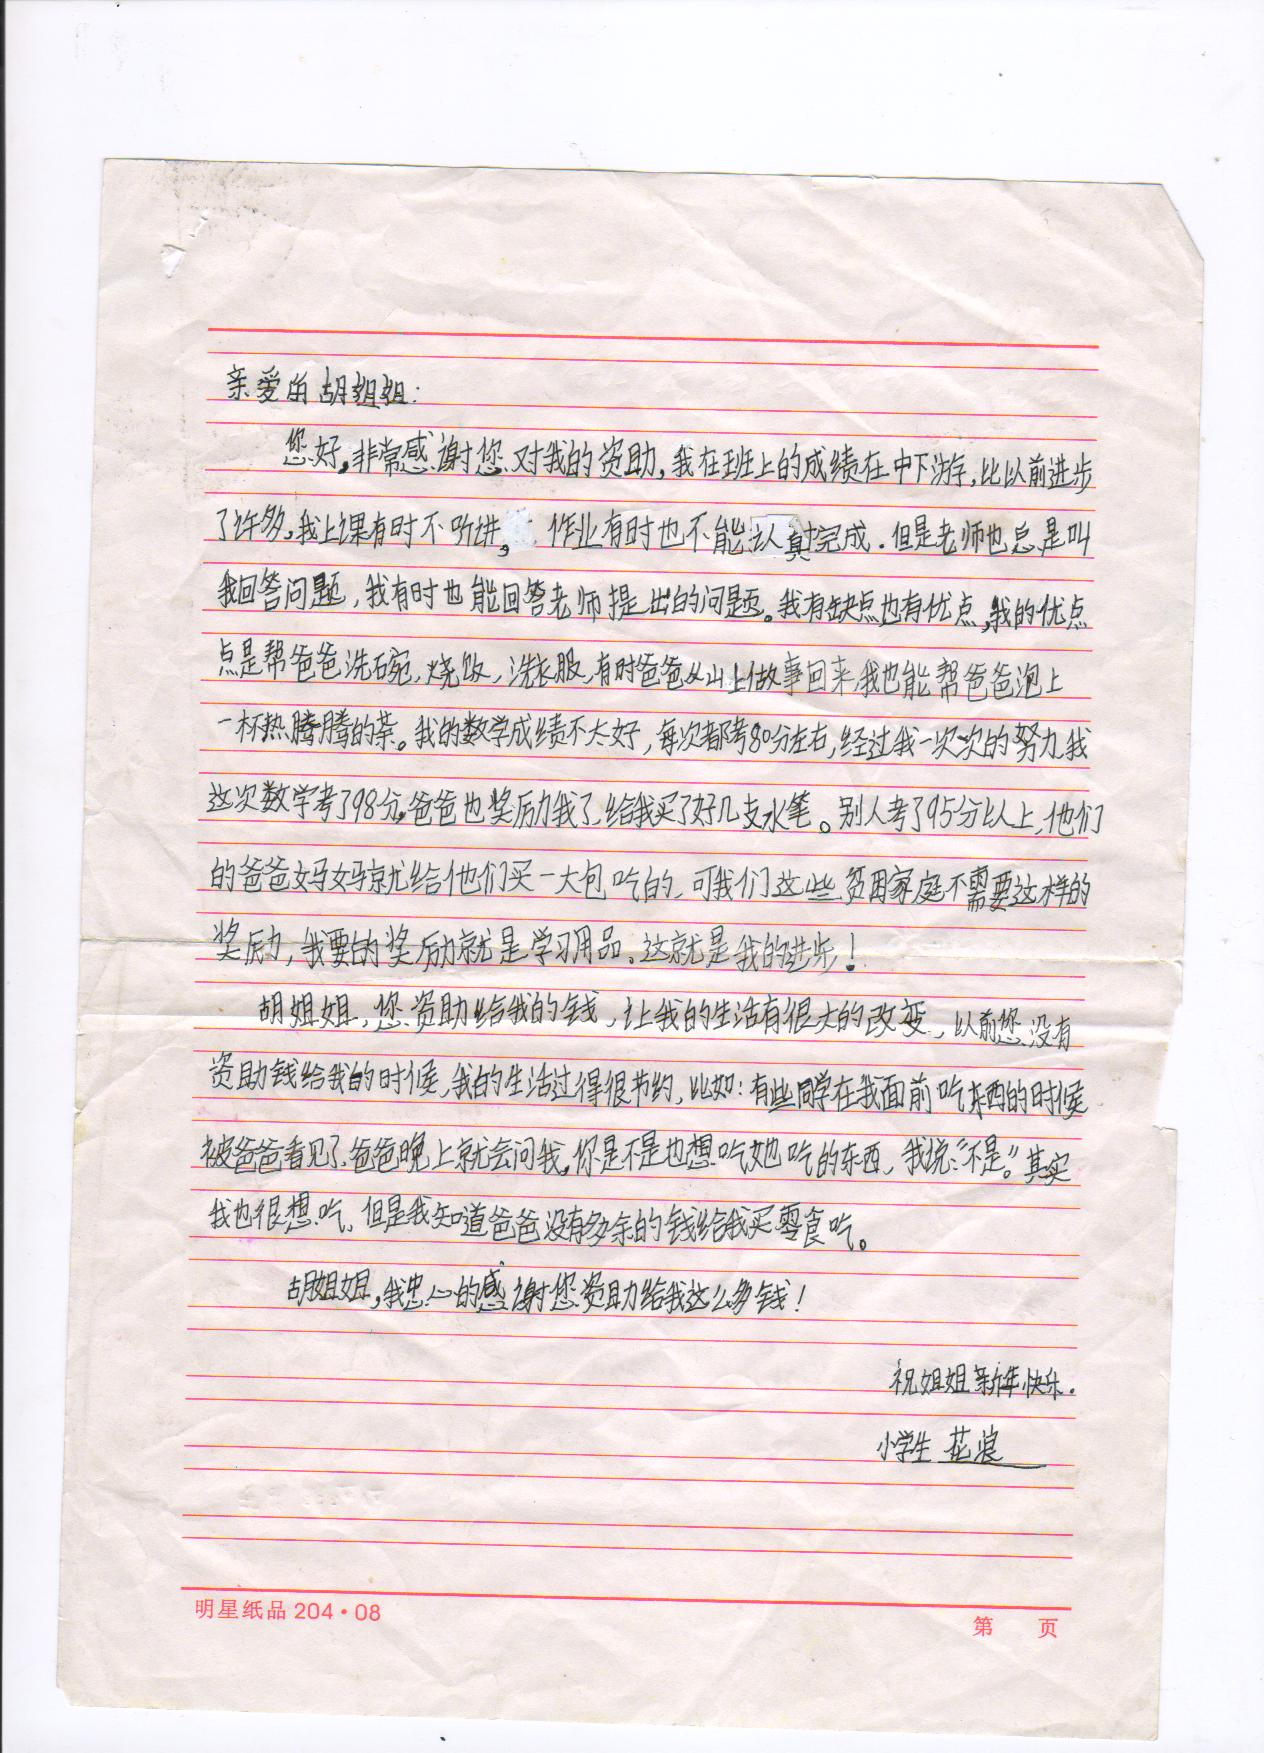 亲爱的胡姐姐:
您好,非常感谢您对我的资助,我在班上的成绩在中下游,比以前进步
了许多,我上课有时不听讲,作业有时也不能认真完成.但是老师也总是叫
我回答问题,我有时也能回答老师提出的问题。我有缺点也有优点,我的优点
点是帮爸爸洗碗,烧饭,洗衣服,有时爸爸从山上做事回来,我也能帮爸爸泡上
一杯热腾腾的茶。我的数学成绩不太好,每次都考80分左右,经过我一次次的努力,我
这次数学考了98分,爸爸也奖励我了,给我买了好几支水笔。别人考了95分以上,他们
的爸爸妈妈就给他们买一大包吃的,可我们这些贫困家庭不需要这样的
奖励,我要的奖励就是学习用品。这就是我的进步!
胡姐姐,您资助给我的钱,让我的生活有很大的改变,以前您没有
资助钱给我的时候,我的生活过得很节约,比如:有些同学在我面前吃东西的时候
被爸爸看见了,爸爸晚上就会问我,你是不是也想吃她吃的东西,我说:“不是。”其实
我也很想吃,但是我知道爸爸没有多余的钱给我买零食吃。
胡姐姐,我忠心的感谢您资助给我这么多钱!
祝姐姐新年快乐.
小学生 花浪
明星纸品 204·08
第 页